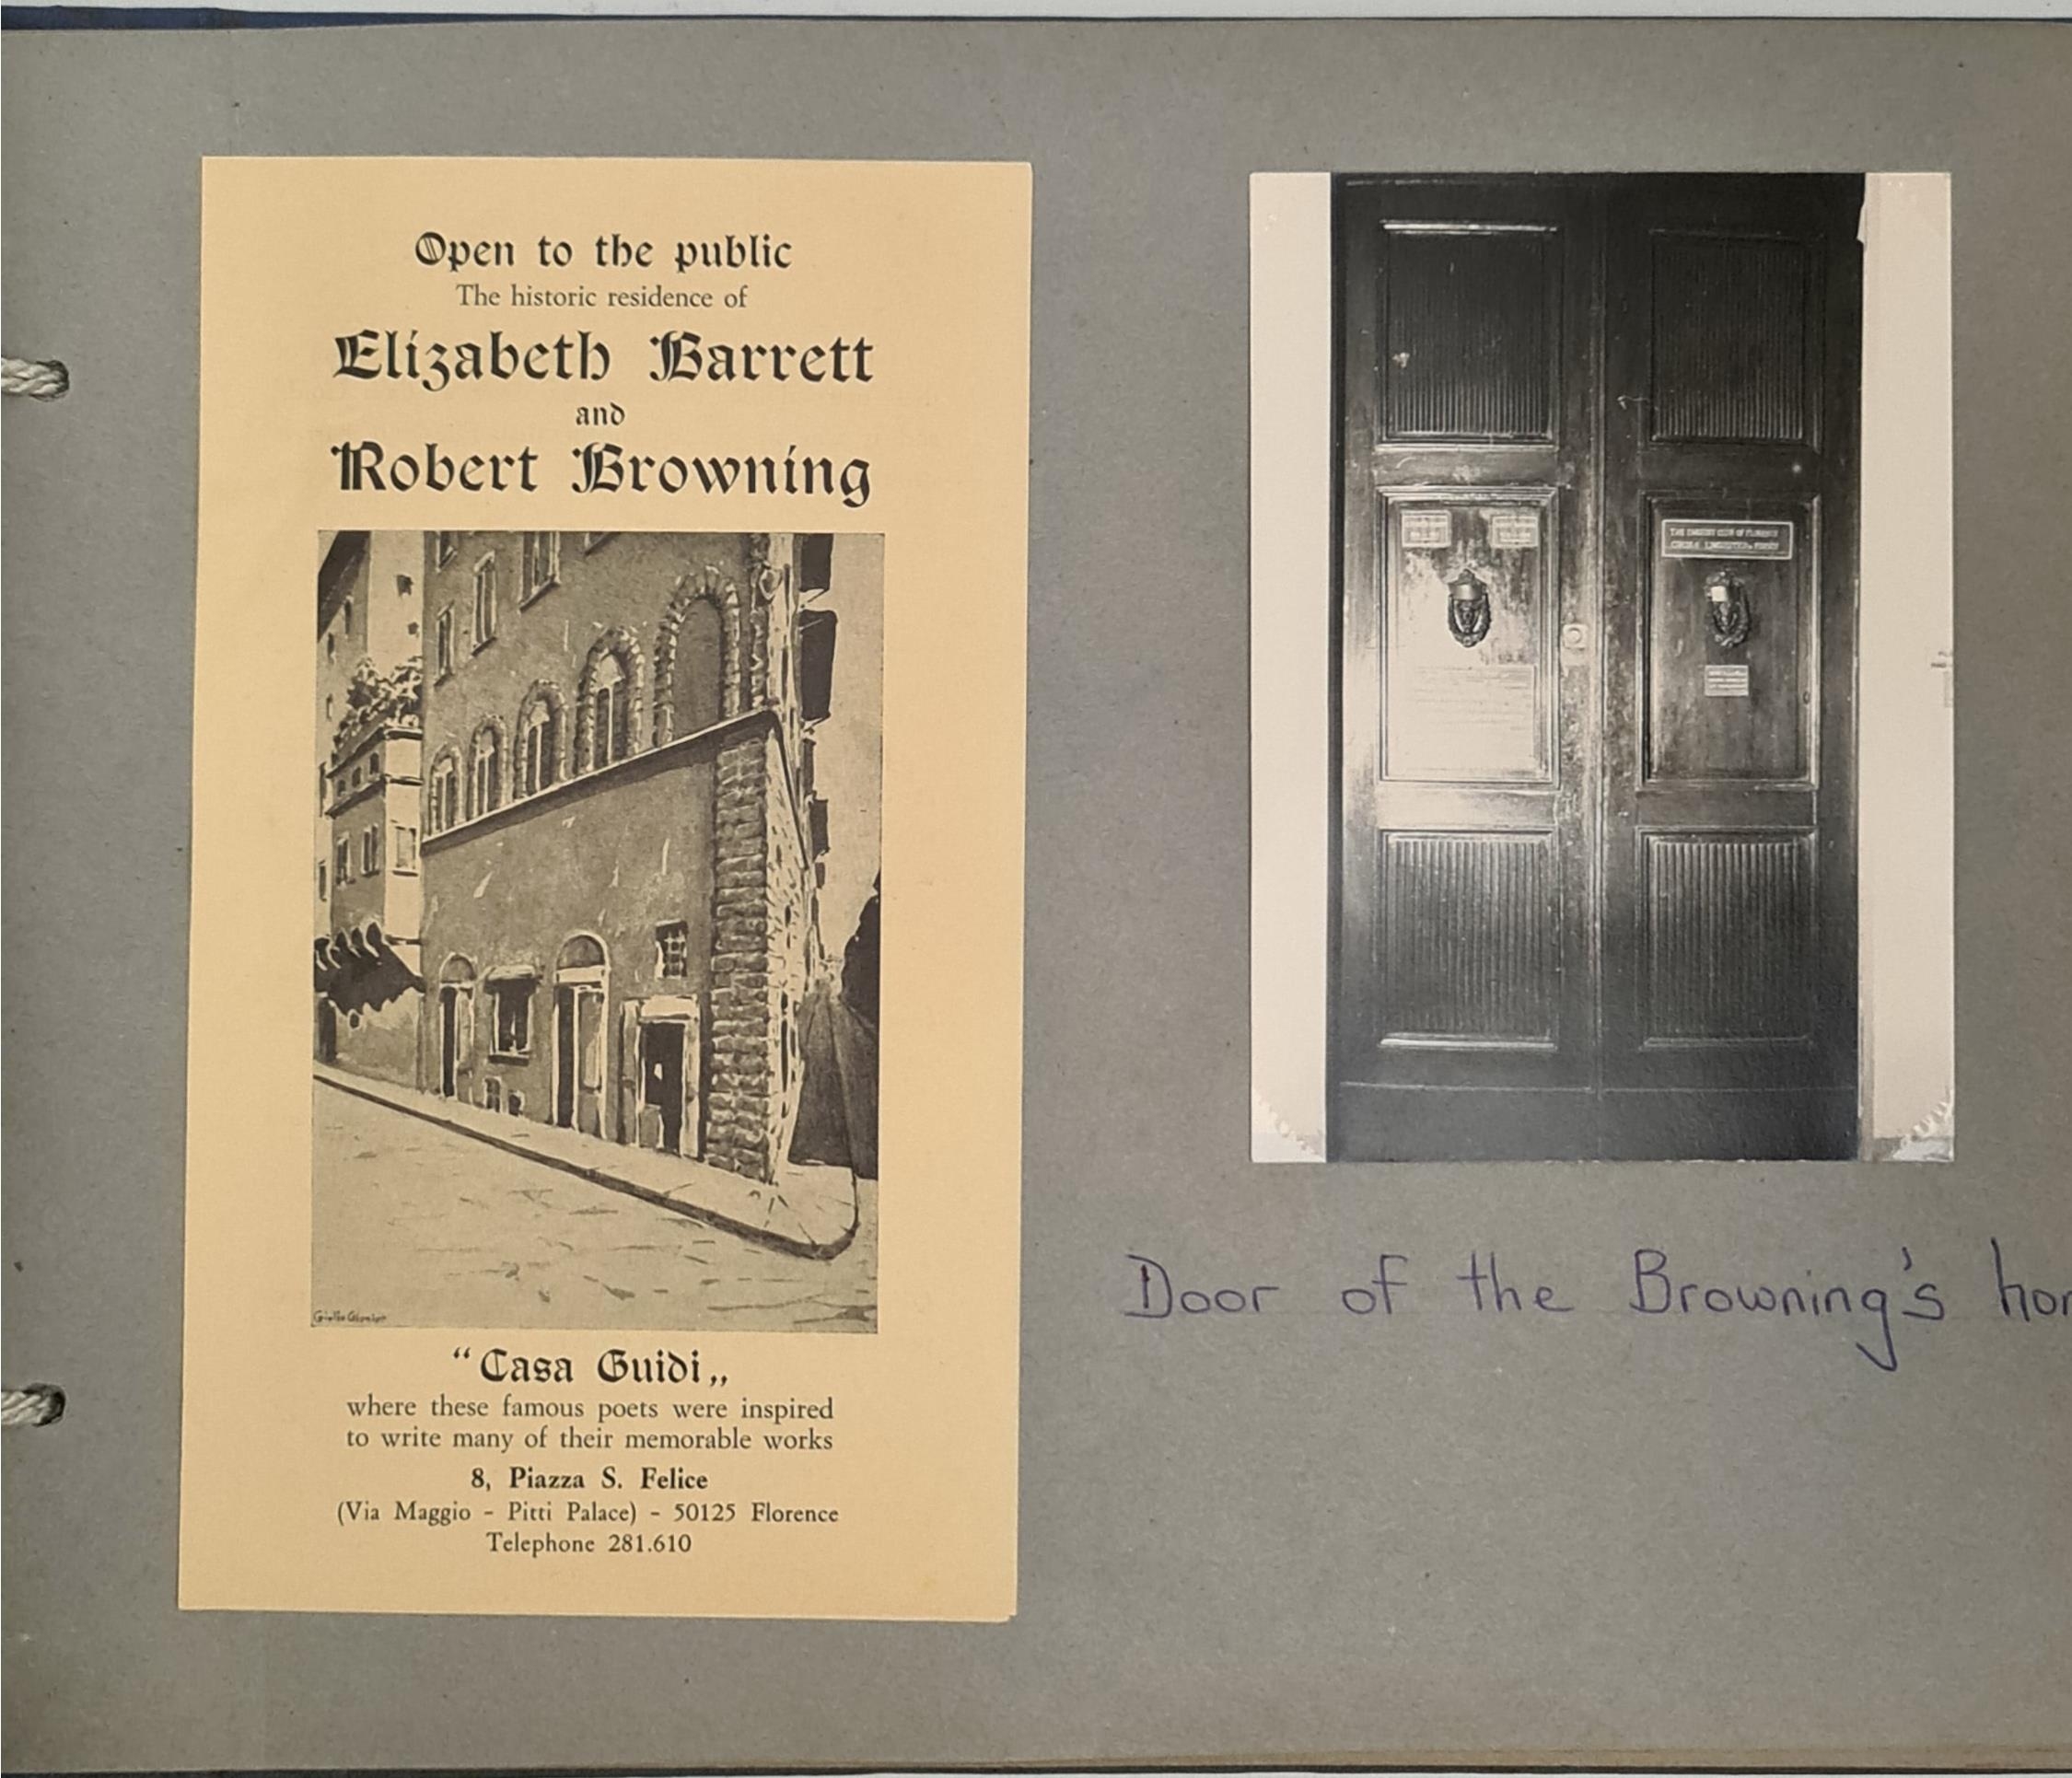 Open to the public
The historic residence of
Elizabeth Barrett
and
Robert Browning
"Casa Guidi„
where these famous poets were inspired
to write many of their memorable works
8, Piazza S. Felice
(Via Maggio - Pitti Palace) - 50125 Florence
Telephone 281.610
THE ENGLISH CLUB OF FLORENCE
Door of the Browning's